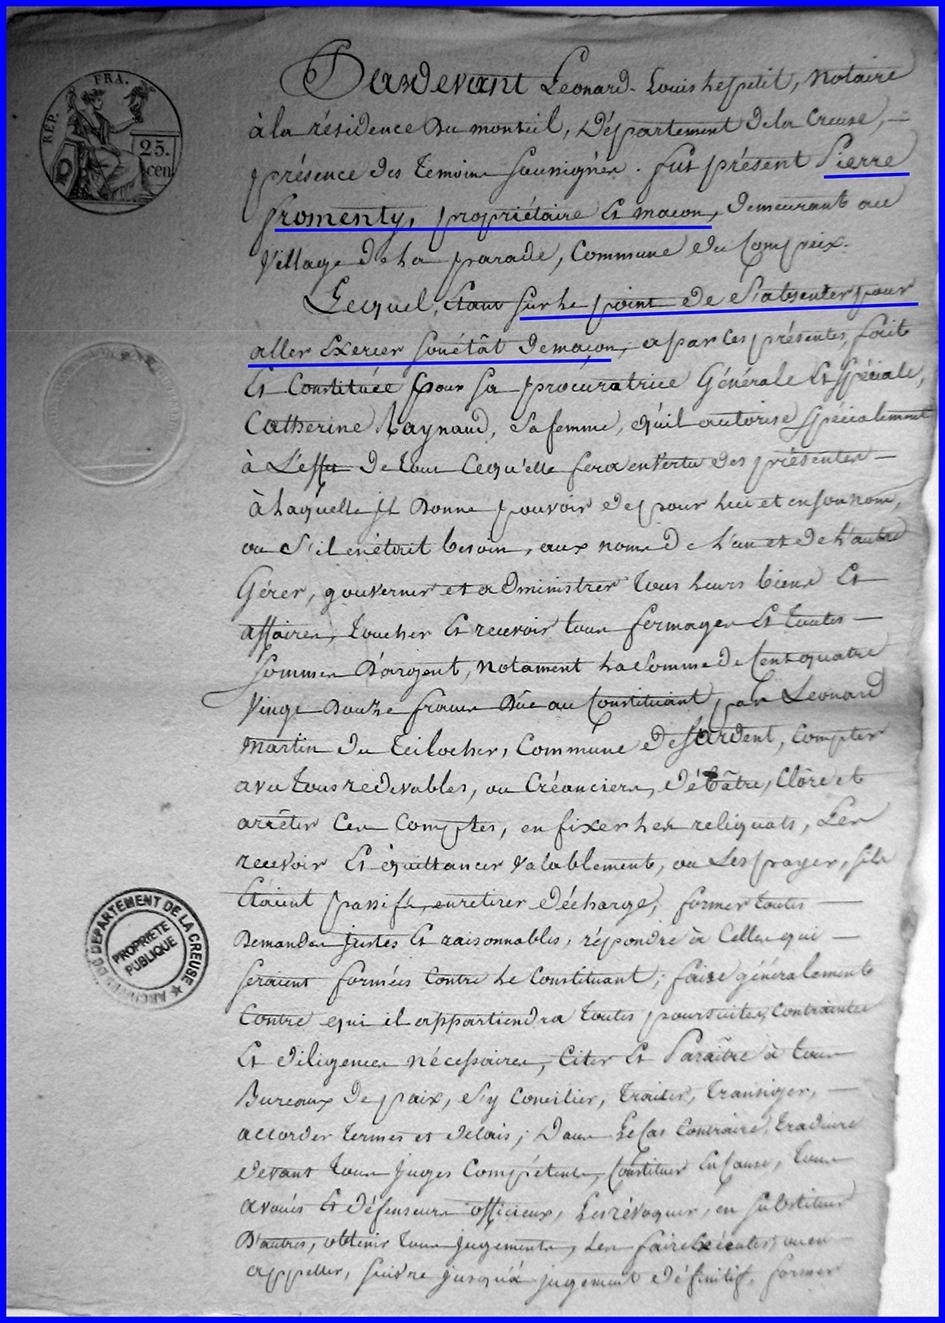 RÉP. FRA.
25.
cen
Pardevant Leonard-Louis Lespetit, Notaire
à la résidence du monteil, Département de la Creuse, —
présence des témoins soussignés. fut présent Pierre
fromenty, propriétaire et maçon, demeurant au
Village de la parade, Commune du Compeix.
Lequel, étant sur le point de s'absenter pour
aller exercer son état de maçon, a par ces présentes, fait
et constituée pour sa procuratrice Générale et spéciale,
Catherine Raynaud, sa femme, qu'il autorise spécialement
à l'effet de tout ce qu'elle fera en vertu des présentes —
à laquelle il donne pouvoir de pour lui et en son nom,
ou s'il en était besoin, aux noms de l'un et de l'autre
Gérer, gouverner et administrer tous leurs biens et
affaires, toucher et recevoir tous fermages et toutes —
sommes d'argent, notament la somme de Cent quatre
Vingt douze francs due au Constituant, par Leonard
Martin du Teilocher, Commune de St ardent, compter
avec tous redevables, ou Créanciers, débâtre, Clôre et
arrêter ces Comptes, en fixer les reliquats, les
recevoir et quittancer valablement, ou les payer, s'ils
étaient passifs, en retirer décharge, former toutes —
demandes justes et raisonnables, répondre à Celles qui —
seraient formées contre le Constituant; faire généralement
Contre qui il appartiendra toutes poursuites, contraintes
et diligences nécessaires, Citer et Paraître à tous
Bureaux de paix, s'y Concilier, traiter, transiger, —
accorder termes et délais; dans le Cas Contraire, traduire
devant tous juges Compétents, Constituer en Cause, tous
avoués et défenseurs officieux, les révoquer, en substituer
d'autres, obtenir tous jugements, les faire exécuter, ou en
appeller, suivre jusqu'à jugement définitif, former
ARCHIVES DU DÉPARTEMENT DE LA CREUSE
PROPRIÉTÉ
PUBLIQUE